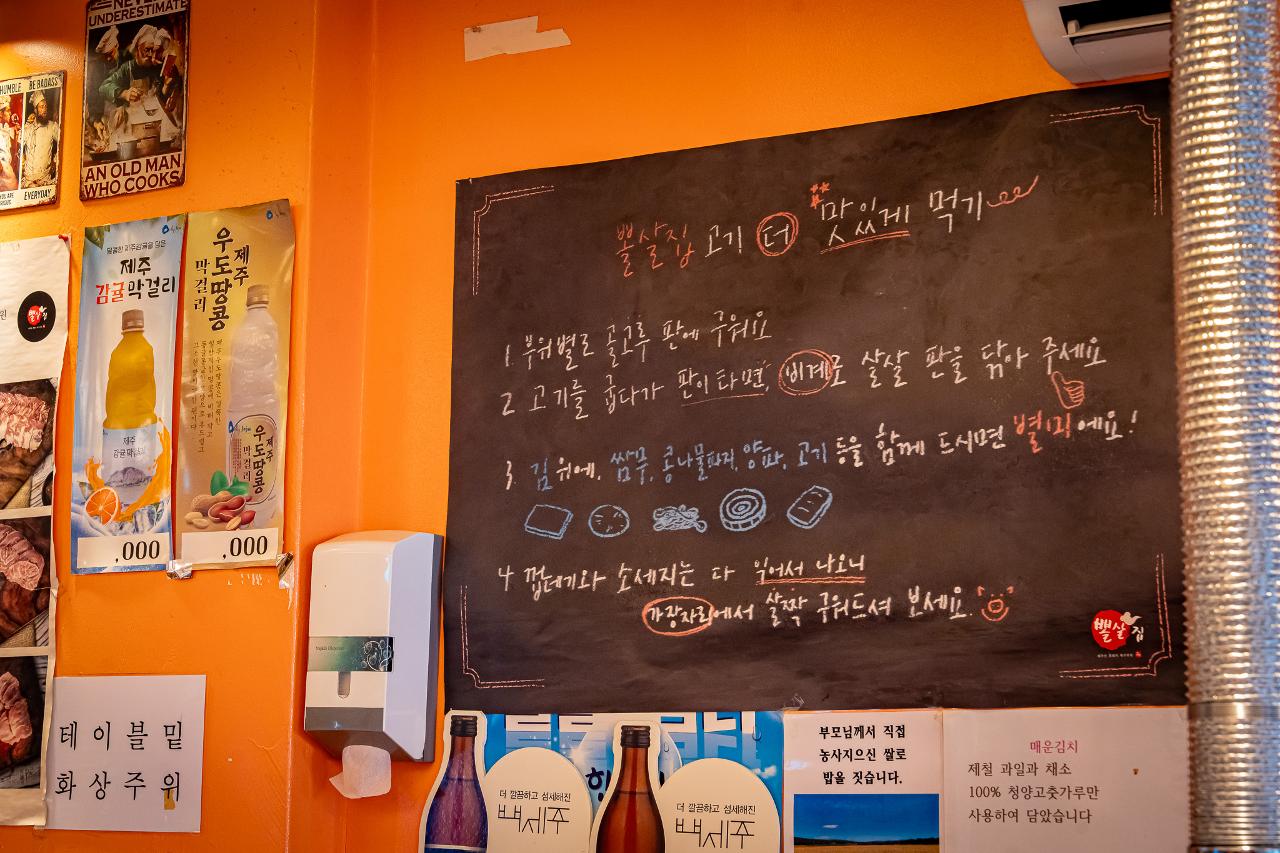 UNDERESTIMATE
AN OLD MAN
WHO COOKS
HUMBLE
BE BADASS
EVERYDAY
제주
감귤막걸리
제주
감귤막걸리
,000
제주
우도땅콩
막걸리
제주
우도땅콩
막걸리
,000
테이블밑
화상주위
뽈살집 고기 더 맛있게 먹기
1 부위별로 골고루 판에 구워요
2 고기를 굽다가 판이 타면, 비계로 살살 판을 닦아 주세요
3. 김 위에, 쌈무, 콩나물파지, 양파, 고기 등을 함께 드시면 별미에요!
4 껍데기와 소세지는 다 익어서 나오니
가장자리에서 살짝 구워드셔 보세요.
뽈살집
더 깔끔하고 섬세해진
뼈세주
더 깔끔하고 섬세해진
뼈세주
부모님께서 직접
농사지으신 쌀로
밥을 짓습니다.
매운김치
제철 과일과 채소
100% 청양고춧가루만
사용하여 담았습니다